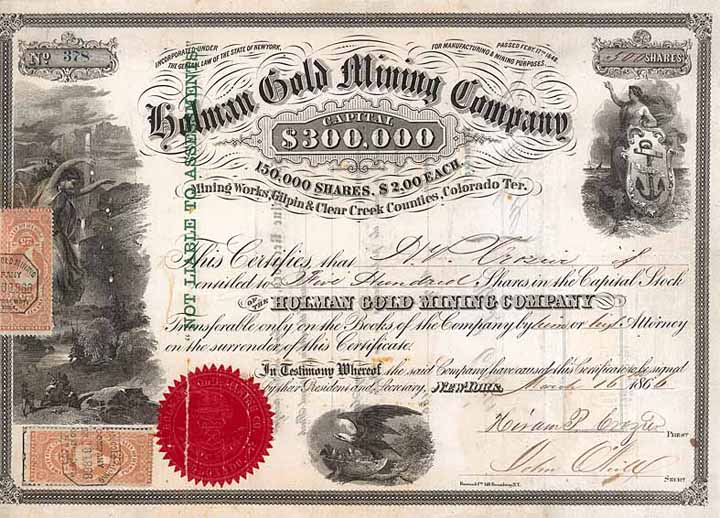 Nº 378
500 SHARES
INCORPORATED UNDER
THE GENERAL LAW OF THE STATE OF NEW YORK,
FOR MANUFACTURING & MINING PURPOSES.
PASSED FEBY. 17TH 1848.
Holman Gold Mining Company
CAPITAL
$300,000
150,000 SHARES. $2,00 EACH.
Mining Works, Gilpin & Clear Creek Counties, Colorado Ter.
NOT LIABLE TO ASSESSMENTS
This Certifies, that H. P. Crozier is
entitled to Five Hundred Shares in the Capital Stock
OF THE HOLMAN GOLD MINING COMPANY
Transferable only on the Books of the Company by him or his Attorney
on the surrender of this Certificate.
In Testimony Whereof the said Company have caused this Certificate to be signed
by their President and Secretary, NEW YORK March 16 1866
Hiram P. Crozier PREST
John SECRY
25